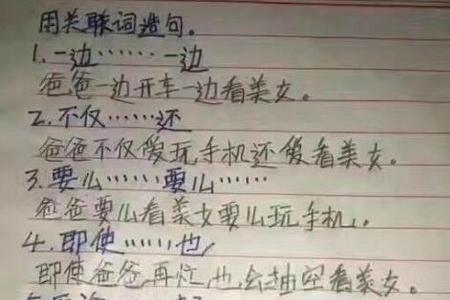 用关联词造句。
1.一边……一边
爸爸一边开车一边看美女。
2.不仅……还
爸爸不仅爱玩手机还爱看美女。
3.要么……要么……
爸爸要么看美女要么玩手机。
4.即使……也
即使爸爸再忙,也会抽空看美女。